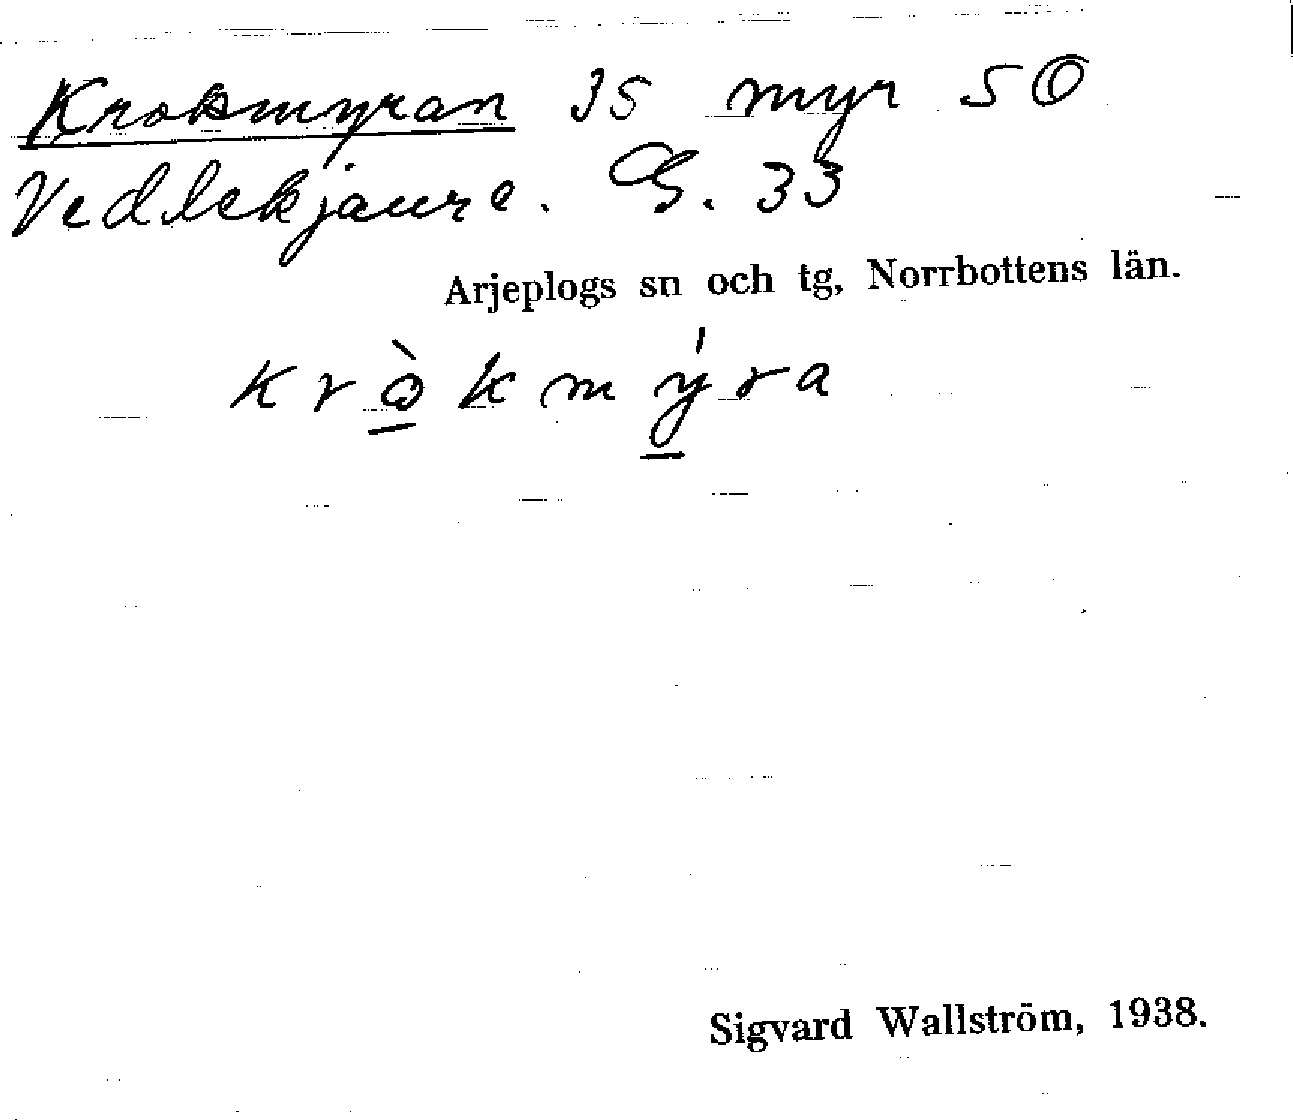 Krokmyran 35 myr SO
Vedlekjaure. G. 33
Arjeplogs sn och tg, Norrbottens län.
kròkmýra
Sigvard Wallström, 1938.